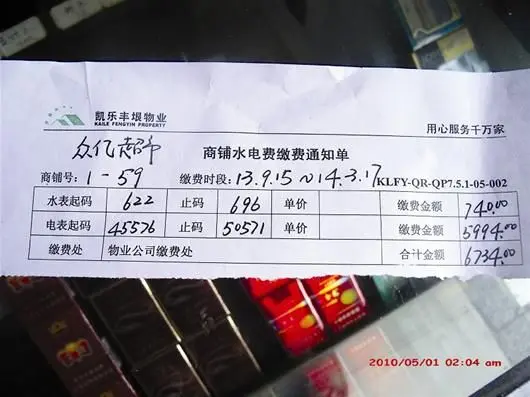 凯乐丰垠物业
KAILE FENGYIN PROPERTY
用心服务千万家
众亿超市 商铺水电费缴费通知单
商铺号: 1-59 缴费时段: 13.9.15~14.3.17 KLFY-QR-QP7.5.1-05-002
水表起码 622 止码 696 单价 缴费金额 740.00
电表起码 45576 止码 50571 单价 缴费金额 5994.00
缴费处 物业公司缴费处 合计金额 6734.00
2010/05/01 02:04 am